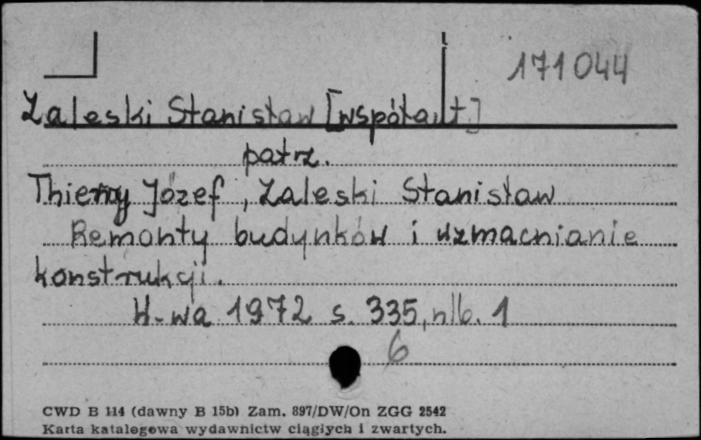 171044
Zaleski Stanisław [współaut.]
patrz.
Thierry Józef, Zaleski Stanisław
Remonty budynków i wzmacnianie
konstrukcji.
W-wa 1972 s. 335, nlb. 1
6
CWD B 114 (dawny B 15b) Zam. 897/DW/On ZGG 2542
Karta katalogowa wydawnictw ciągłych i zwartych.